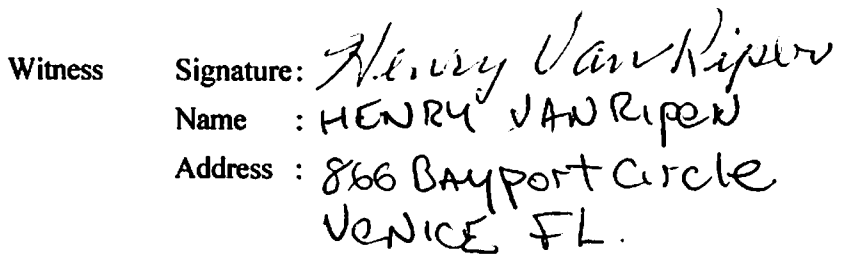 Witness Signature: Henry Van Riper
Name : HENRY VAN RIPER
Address : 866 BAYPORT Circle
VENICE FL.